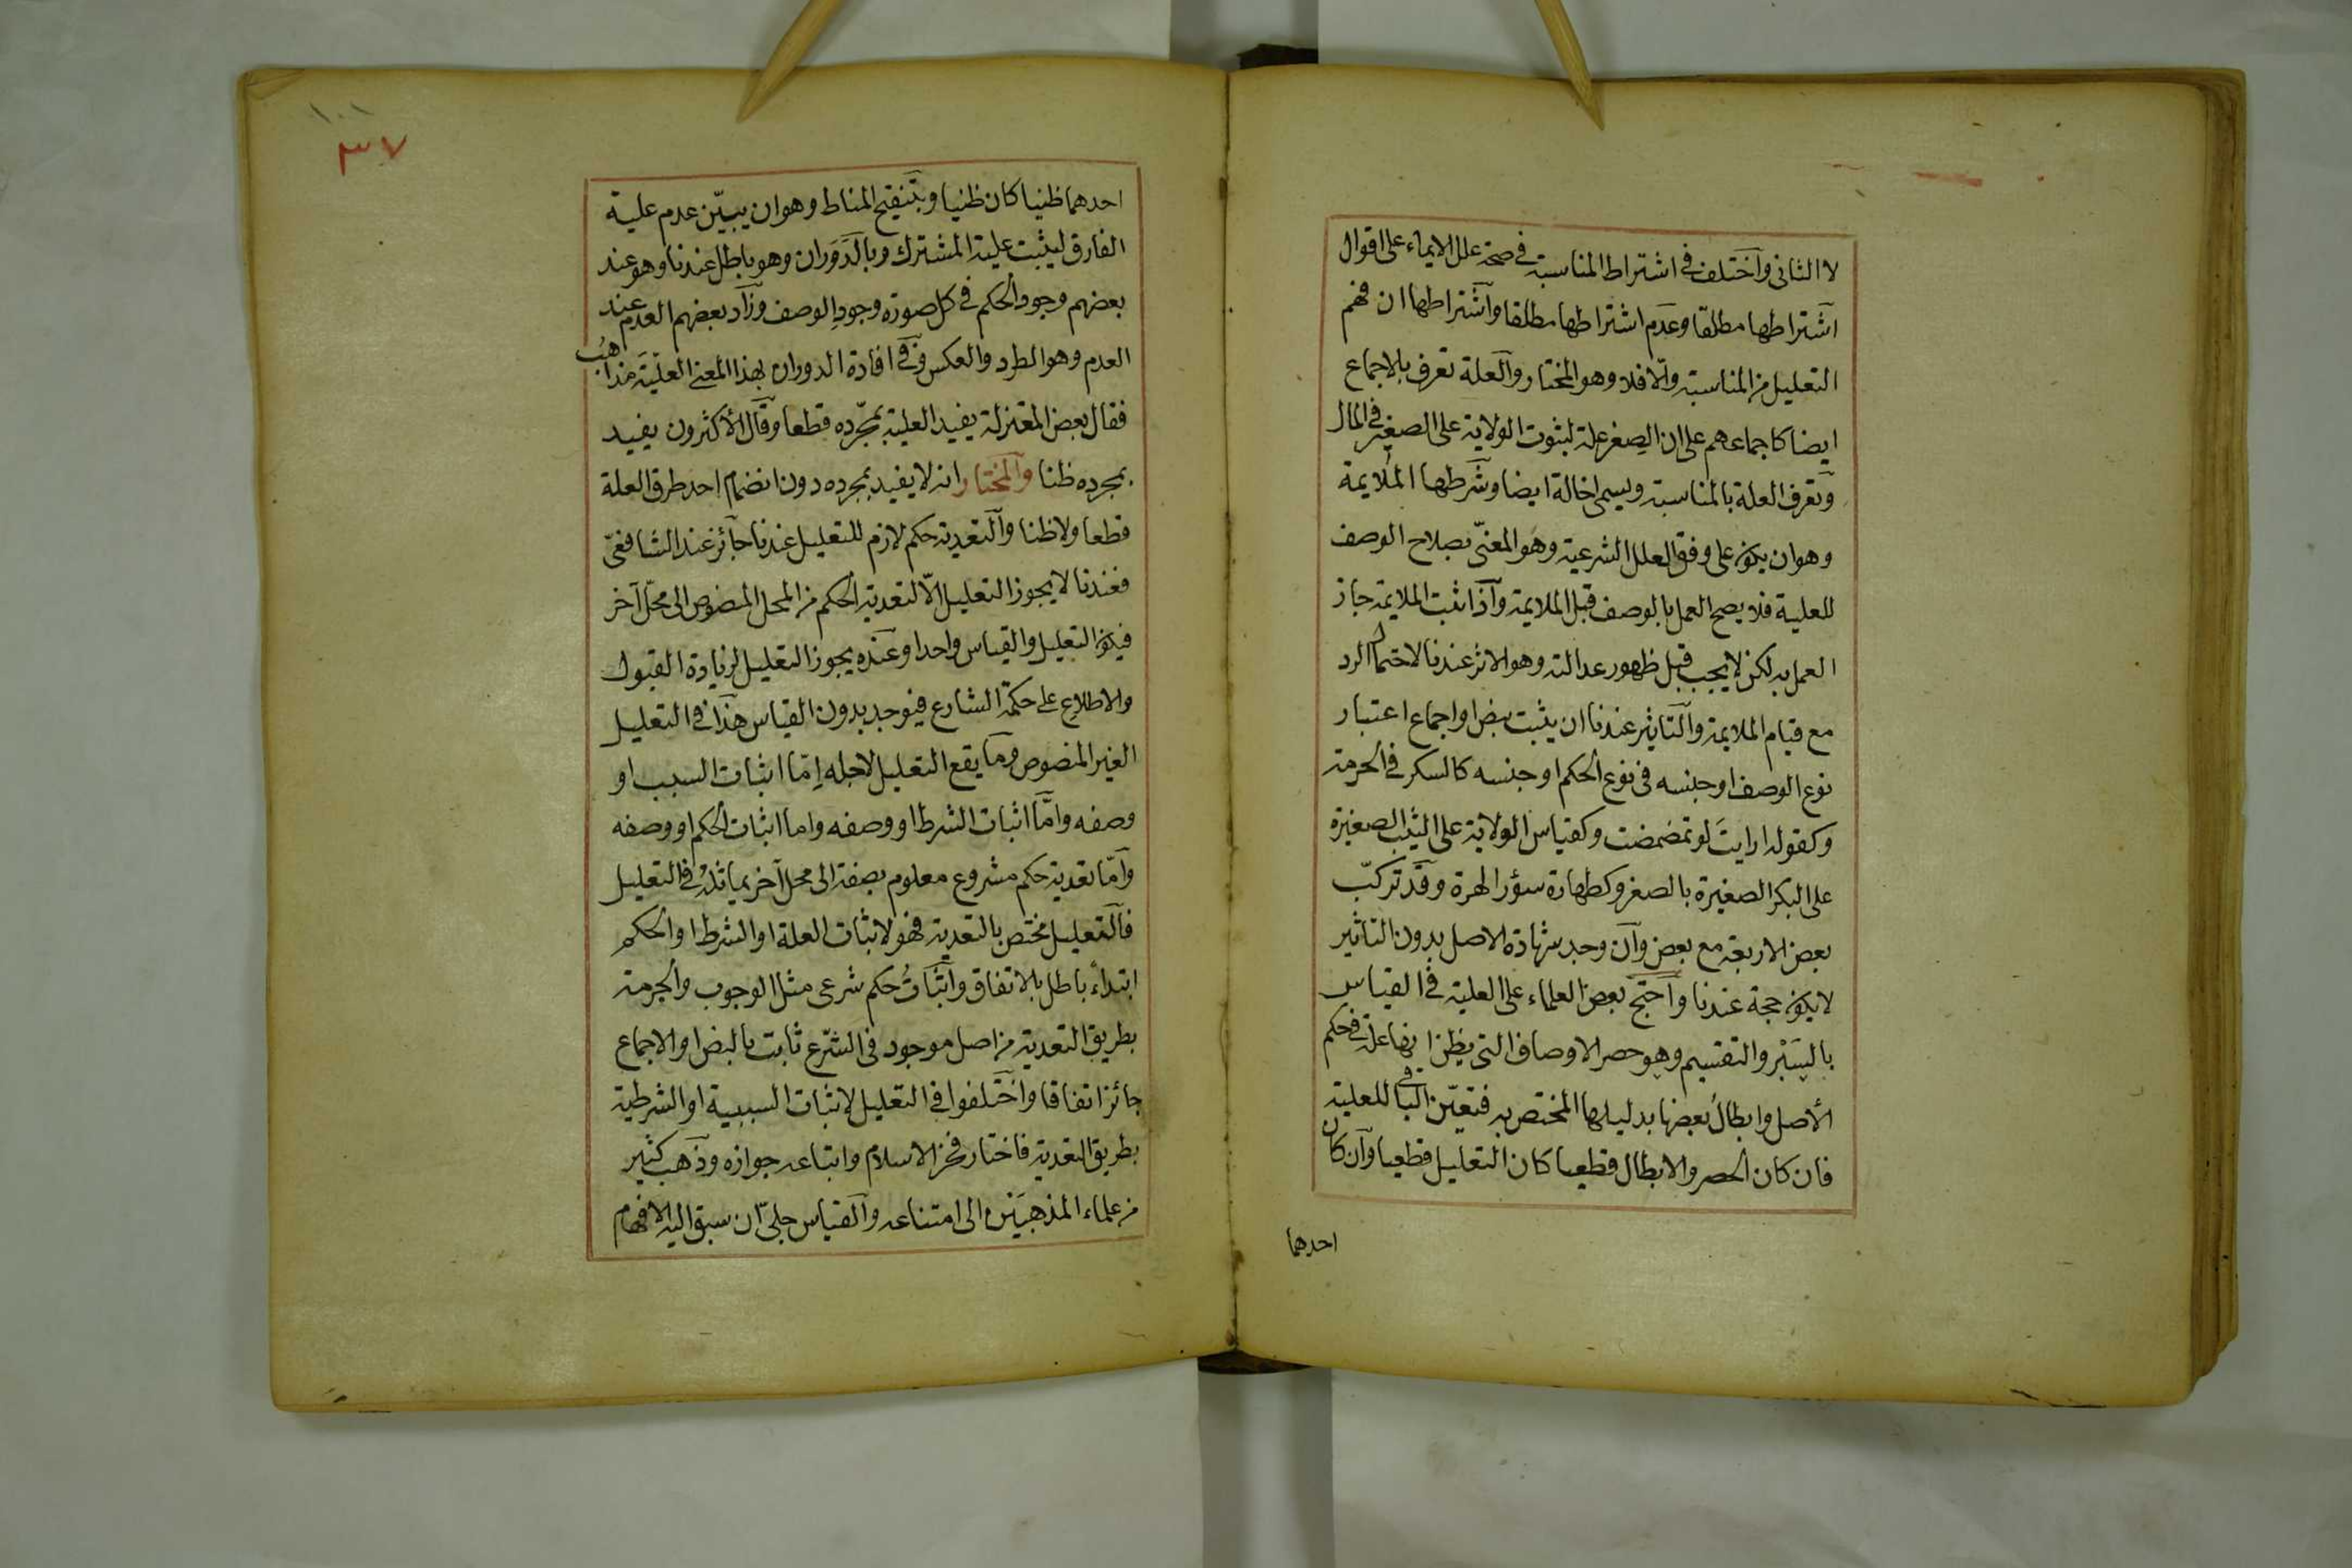 لا الثانى وآختلف فى اشتراط المناسبة فى صحة علل الايماء على اقوال
آشتراطها مطلقا وعدم اشتراطها مطلقا وآشتراطها ان فهم
التعليل من المناسبة والّا فلا وهو المختار والعلة تعرف بالاجماع
ايضا كاجماعهم على ان الصغر علة لثبوت الولاية على الصغير فى المال
وتعرف العلة بالمناسبة ويسمى اخالة ايضا وشرطها الملايمة
وهو ان يكون على وفق العلل الشرعية وهو المعنىّ بصلاح الوصف
للعلية فلا يصح العمل بالوصف قبل الملايمة وآذا ثبت الملايمة جاز
العمل به لكن لا يجب قبل ظهور عدالته وهو الاثر عندنا لاحتمال الرد
مع قيام الملايمة والتاثير عندنا ان يثبت بنص او اجماع اعتبار
نوع الوصف او جنسه فى نوع الحكم او جنسه كالسكر فى الحرمة
وكقوله ارايتَ لو تمضمضت وكقياس الولاية على الثيب الصغيرة
على البكر الصغيرة بالصغر وكطهارة سؤر الهرة وقد تركّب
بعض الاربعة مع بعض وآن وجد شهادة الاصل بدون التاثير
لا يكون حجة عندنا وآحتج بعض العلماء على العلية فى القياس
بالسَبْر والتقسيم وهو حصر الاوصاف التى يظن انها علة فى حكم
الأصل وابطالُ بعضها بدليلها المختص به فتعيّن الباقى للعلية
فان كان الحصر والابطال قطعيا كان التعليل قطعيا وآن كان
احدهما
١٠١
٣٧
احدهما ظنيا كان ظنيا وبتنقيح المناط وهو ان يبيّن عدم علية
الفارق ليثبت علية المشترك وبالدَوَران وهو باطل عندنا وهو عند
بعضهم وجود الحكم فى كل صورة وجودِ الوصف وزآد بعضهم العدم عند
العدم وهو الطرد والعكس وفى افادة الدوران بهذا المعنى العلّيَة مذاهبُ
فقال بعض المعتزلة يفيد العلية بمجّرده قطعا وقال الأكثرون يفيد
بمجرده ظنا والمختار انه لا يفيد بمجرده دون انضمام احد طرق العلة
قطعا ولا ظنا والتعدية حكم لازم للتعليل عندنا جآئز عند الشافعىّ
فعندنا لا يجوز التعليل الّا لتعدية الحكم من المحل المنصوص الى محلّ آخر
فيكون التعليل والقياس واحدا وعنده يجوز التعليل لزيادة القبول
والاطلاع على حكمة الشارع فيوجد بدون القياس هذا فى التعليل
الغير المنصوص وما يقع التعليل لاجله اِمّا اثبات السبب او
وصفه وامَّا اثبات الشرط او وصفه واما اثبات الحكم او وصفه
وآمّا تعدية حكم مشروع معلوم بصفته الى محل آخر يماثله فى التعليل
فالتعليل مختص بالتعدية فهو لاثبات العلة او الشرط او الحكم
ابتداء باطل بالاتفاق وآثباتُ حكم شرعى مثل الوجوب والحرمة
بطريق التعدية من اصل موجود فى الشّرع ثابت بالنص او الاجماع
جائز اتفاقا واختلفوا فى التعليل لاثبات السببية او الشرطية
بطريق التعدية فاختار فخر الاسلام واتباعه جوازه وذَهب كثير
من علماء المذهبَيْن الى امتناعه والقياس جلىّ ان سبق اليه الافهام